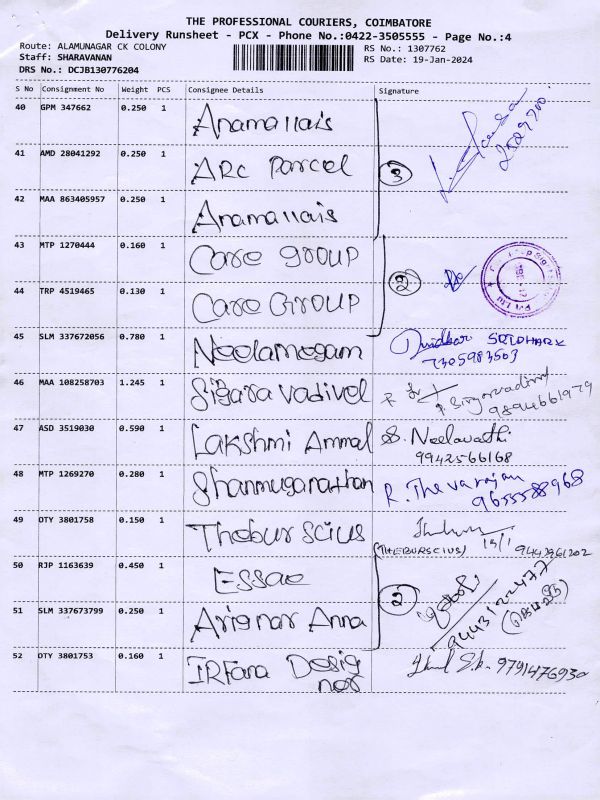 THE PROFESSIONAL COURIERS, COIMBATORE
Delivery Runsheet - PCX - Phone No.:0422-3505555 - Page No.:4
Route: ALAMUNAGAR CK COLONY RS No.: 1307762
Staff: SHARAVANAN RS Date: 19-Jan-2024
DRS No.: DCJB130776204
S No Consignment No Weight PCS Consignee Details Signature
40 GPM 347662 0.250 1 Anamallais
41 AMD 28041292 0.250 1 ARC Parcel 3
42 MAA 863405957 0.250 1 Anamallais
43 MTP 1270444 0.160 1 Care group 2
44 TRP 4519465 0.130 1 Care Group
45 SLM 337672056 0.780 1 Neelamegam SRIDHAR K
7305983503
46 MAA 108258703 1.245 1 Sigara vadivel
9894661979
47 ASD 3519030 0.590 1 Lakshmi Ammal S. Neelavathi
9942566168
48 MTP 1269270 0.280 1 Shanmuganathan R. Thevarajan
9655588968
49 OTY 3801758 0.150 1 Thebur scius
(THEBURSCIUS) 19/1 9442361202
50 RJP 1163639 0.450 1 Essae
51 SLM 337673799 0.250 1 Arignar Anna 2 9443122477
52 OTY 3801753 0.160 1 IRFana Desig
ner 9791476930